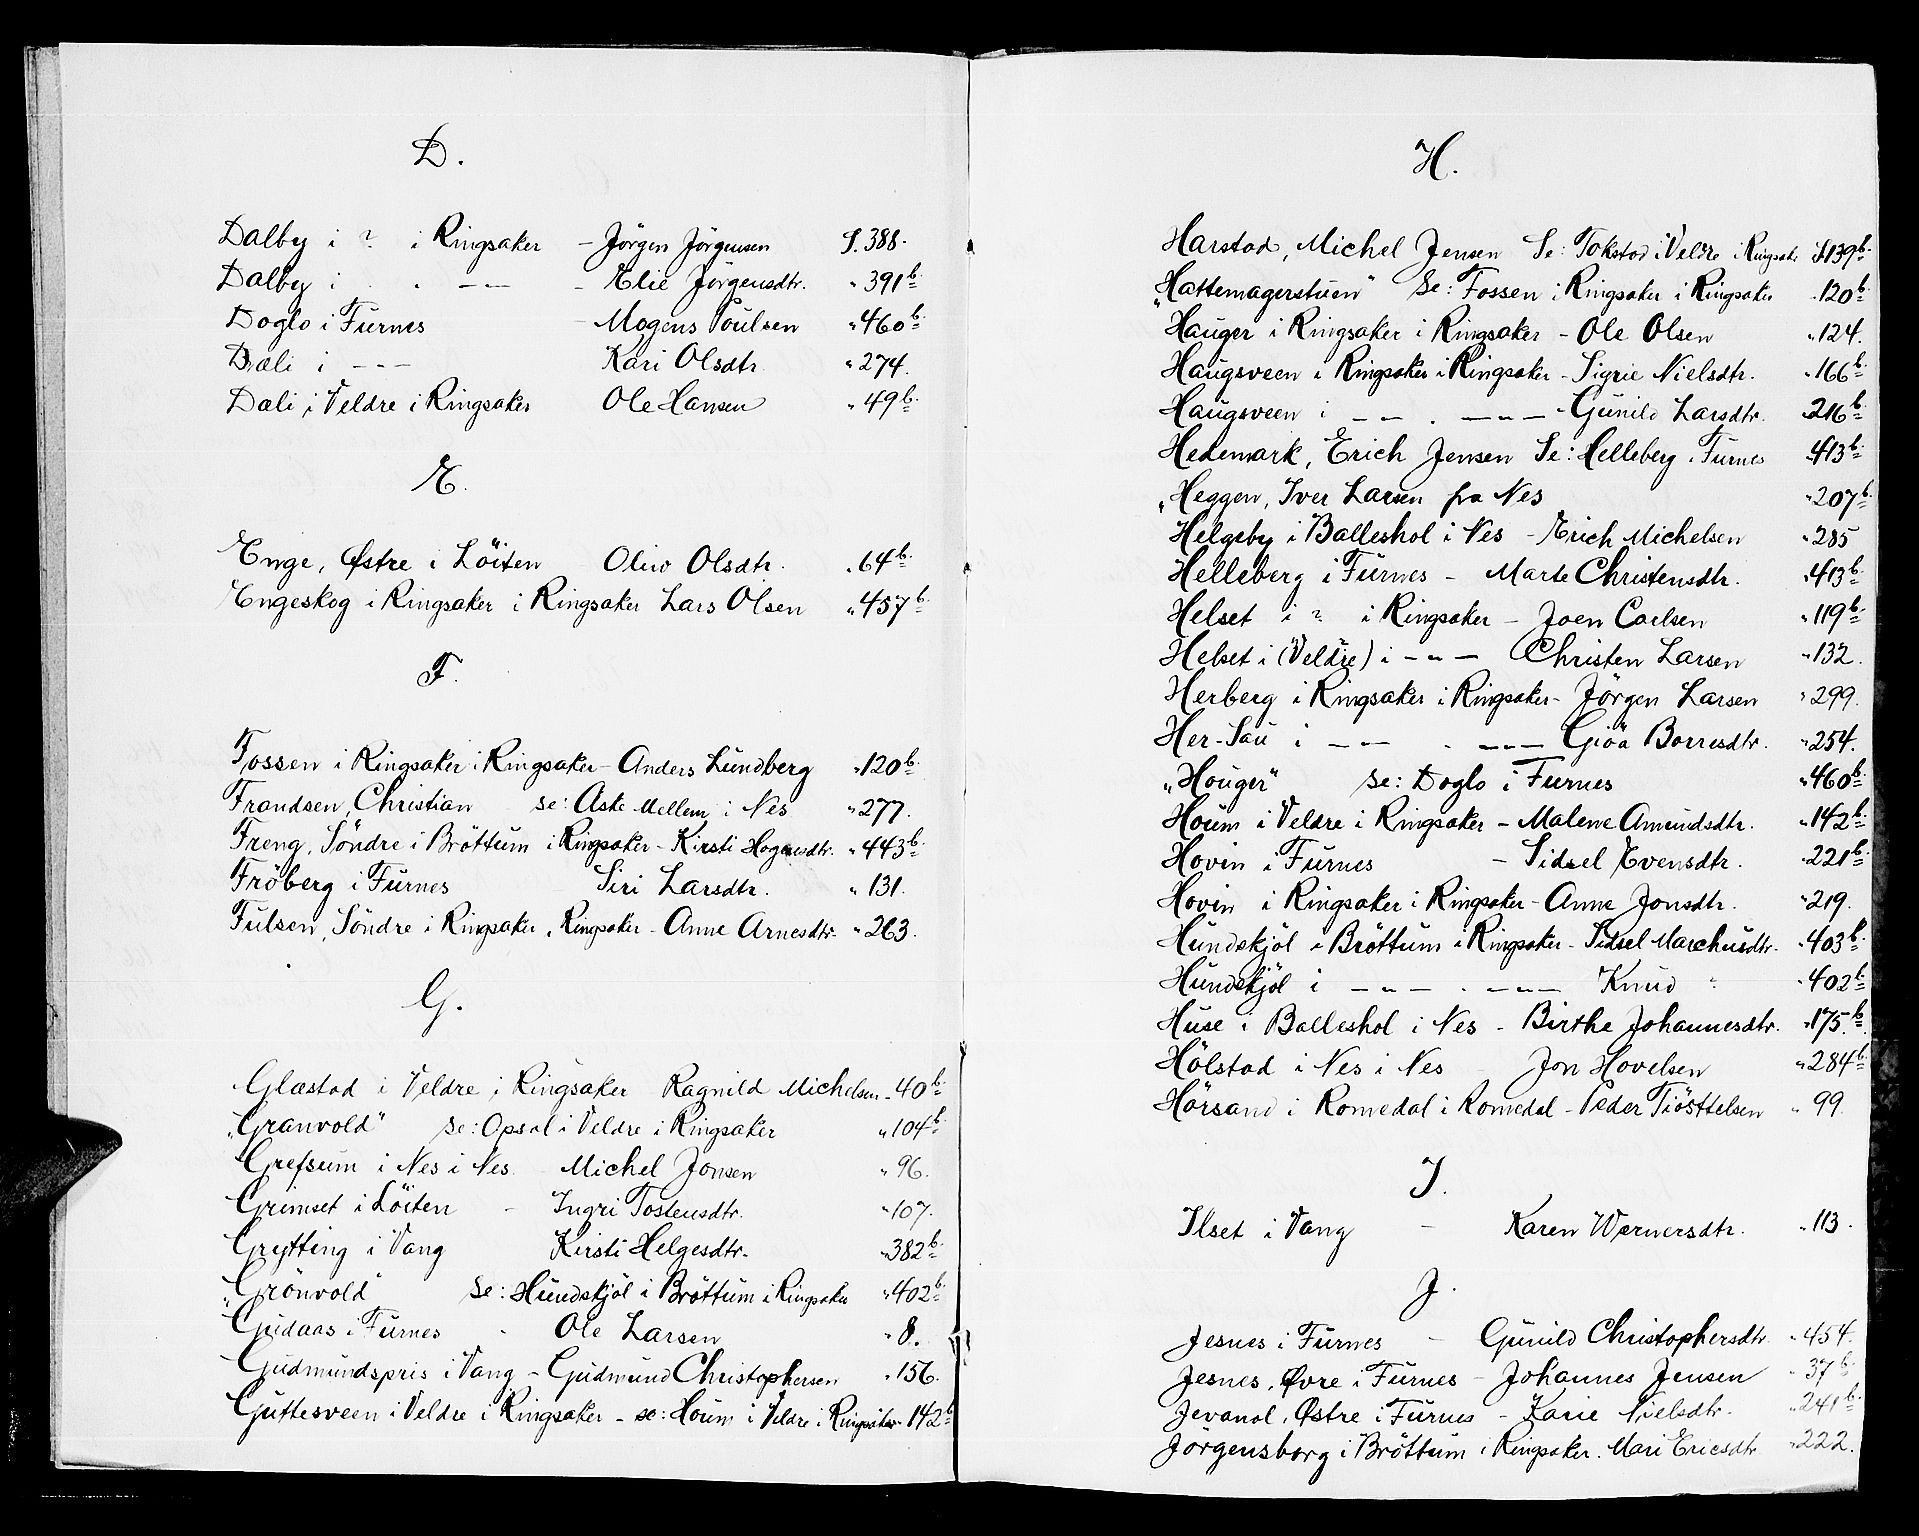 D.
Dalby i ? i Ringsaker - Jörgen Jörgensen S. 388.
Dalby i . . — — - Elie Jörgensdtr. " 391b.
Doglo i Furnes - Mogens Poulsen " 460b.
Dæli i — — — Kari Olsdtr. " 274.
Dæli i Veldre i Ringsaker Ole Hansen " 49b.
E.
Enge, Østre i Löiten Oliv Olsdtr. " 64b.
Engeskog i Ringsaker i Ringsaker Lars Olsen " 457b.
F.
Fossen i Ringsaker i Ringsaker - Anders Lundberg " 120b.
Frandsen, Christian se: Aske Mellem i Nes " 277.
Freng, Söndre i Bröttum i Ringsaker - Kirsti Hogensdtr. " 443b.
Fröberg i Furnes Siri Larsdtr. " 131.
Fulsen, Söndre i Ringsaker i Ringsaker - Anne Arnesdtr. " 263.
G.
Glæstad i Veldre i Ringsaker Ragnild Michelsen " 40b.
"Granvold" se: Opsal i Veldre i Ringsaker " 104b.
Grefsum i Nes i Nes. Michel Jonsen " 96.
Grimset i Löiten - Ingri Tostensdtr. " 107.
Grytting i Vang Kirsti Helgesdtr. " 382b.
"Grönvold" se: Hundskjöl i Bröttum i Ringsaker " 402b.
Gudaas i Furnes - Ole Larsen " 8.
Gudmundspris i Vang - Gudmund Christophersen " 156.
Guttesveen i Veldre i Ringsaker - se: Houm i Veldre i Ringsaker " 142b
H.
Harstad, Michel Jensen Se: Tokstad i Veldre i Ringsaker S 139b.
"Hattemagerstuen" Se: Fossen i Ringsaker i Ringsaker " 120b.
Hauger i Ringsaker i Ringsaker - Ole Olsen " 124.
Haugsveen i Ringsaker i Ringsaker - Sigrie Nielsdtr. " 166b.
Haugsveen i — — . — " — - Gunild Larsdtr. " 216b.
Hedemark, Erich Jensen Se: Helleberg i Furnes " 413b.
"Heggen, Iver Larsen fra Nes " 207b.
Helgeby i Balleshol i Nes - Erich Michelsen " 285
Helleberg i Furnes - Marte Christensdtr. " 413b.
Helset i ? i Ringsaker - Joen Carlsen " 119b.
Helset i (Veldre) i — " — Christen Larsen " 132.
Herberg i Ringsaker i Ringsaker - Jörgen Larsen " 299.
Her-Sau i — — . — — — Giöa Borresdtr. " 254.
"Houger" se: Doglo i Furnes " 460b.
Houm i Veldre i Ringsaker - Malene Amundsdtr. " 142b.
Hovin i Furnes - Sidsel Evensdtr. " 221b.
Hovin i Ringsaker i Ringsaker - Anne Jonsdtr. " 219.
Hundskjöl i Bröttum i Ringsaker - Sidsel Marchusdtr. " 403b.
Hundskjöl i — " — . — " — Knud " " 402b.
Huse i Balleshol i Nes - Birthe Johannesdtr. " 175b.
Hölstad i Nes i Nes - Jon Hovelsen " 284b.
Hörsand i Romedal i Romedal - Peder Tiösttelsen " 99.
I.
Ilset i Vang - Karen Wernersdtr. " 113.
J.
Jesnes i Furnes - Gunild Christophersdtr. " 454.
Jesnes, Øvre i Furnes - Johannes Jensen " 37b.
Jevanol, Østre i Furnes - Karie Nielsdtr. " 241b.
Jörgensborg i Bröttum i Ringsaker. Mari Ericsdtr. " 222.